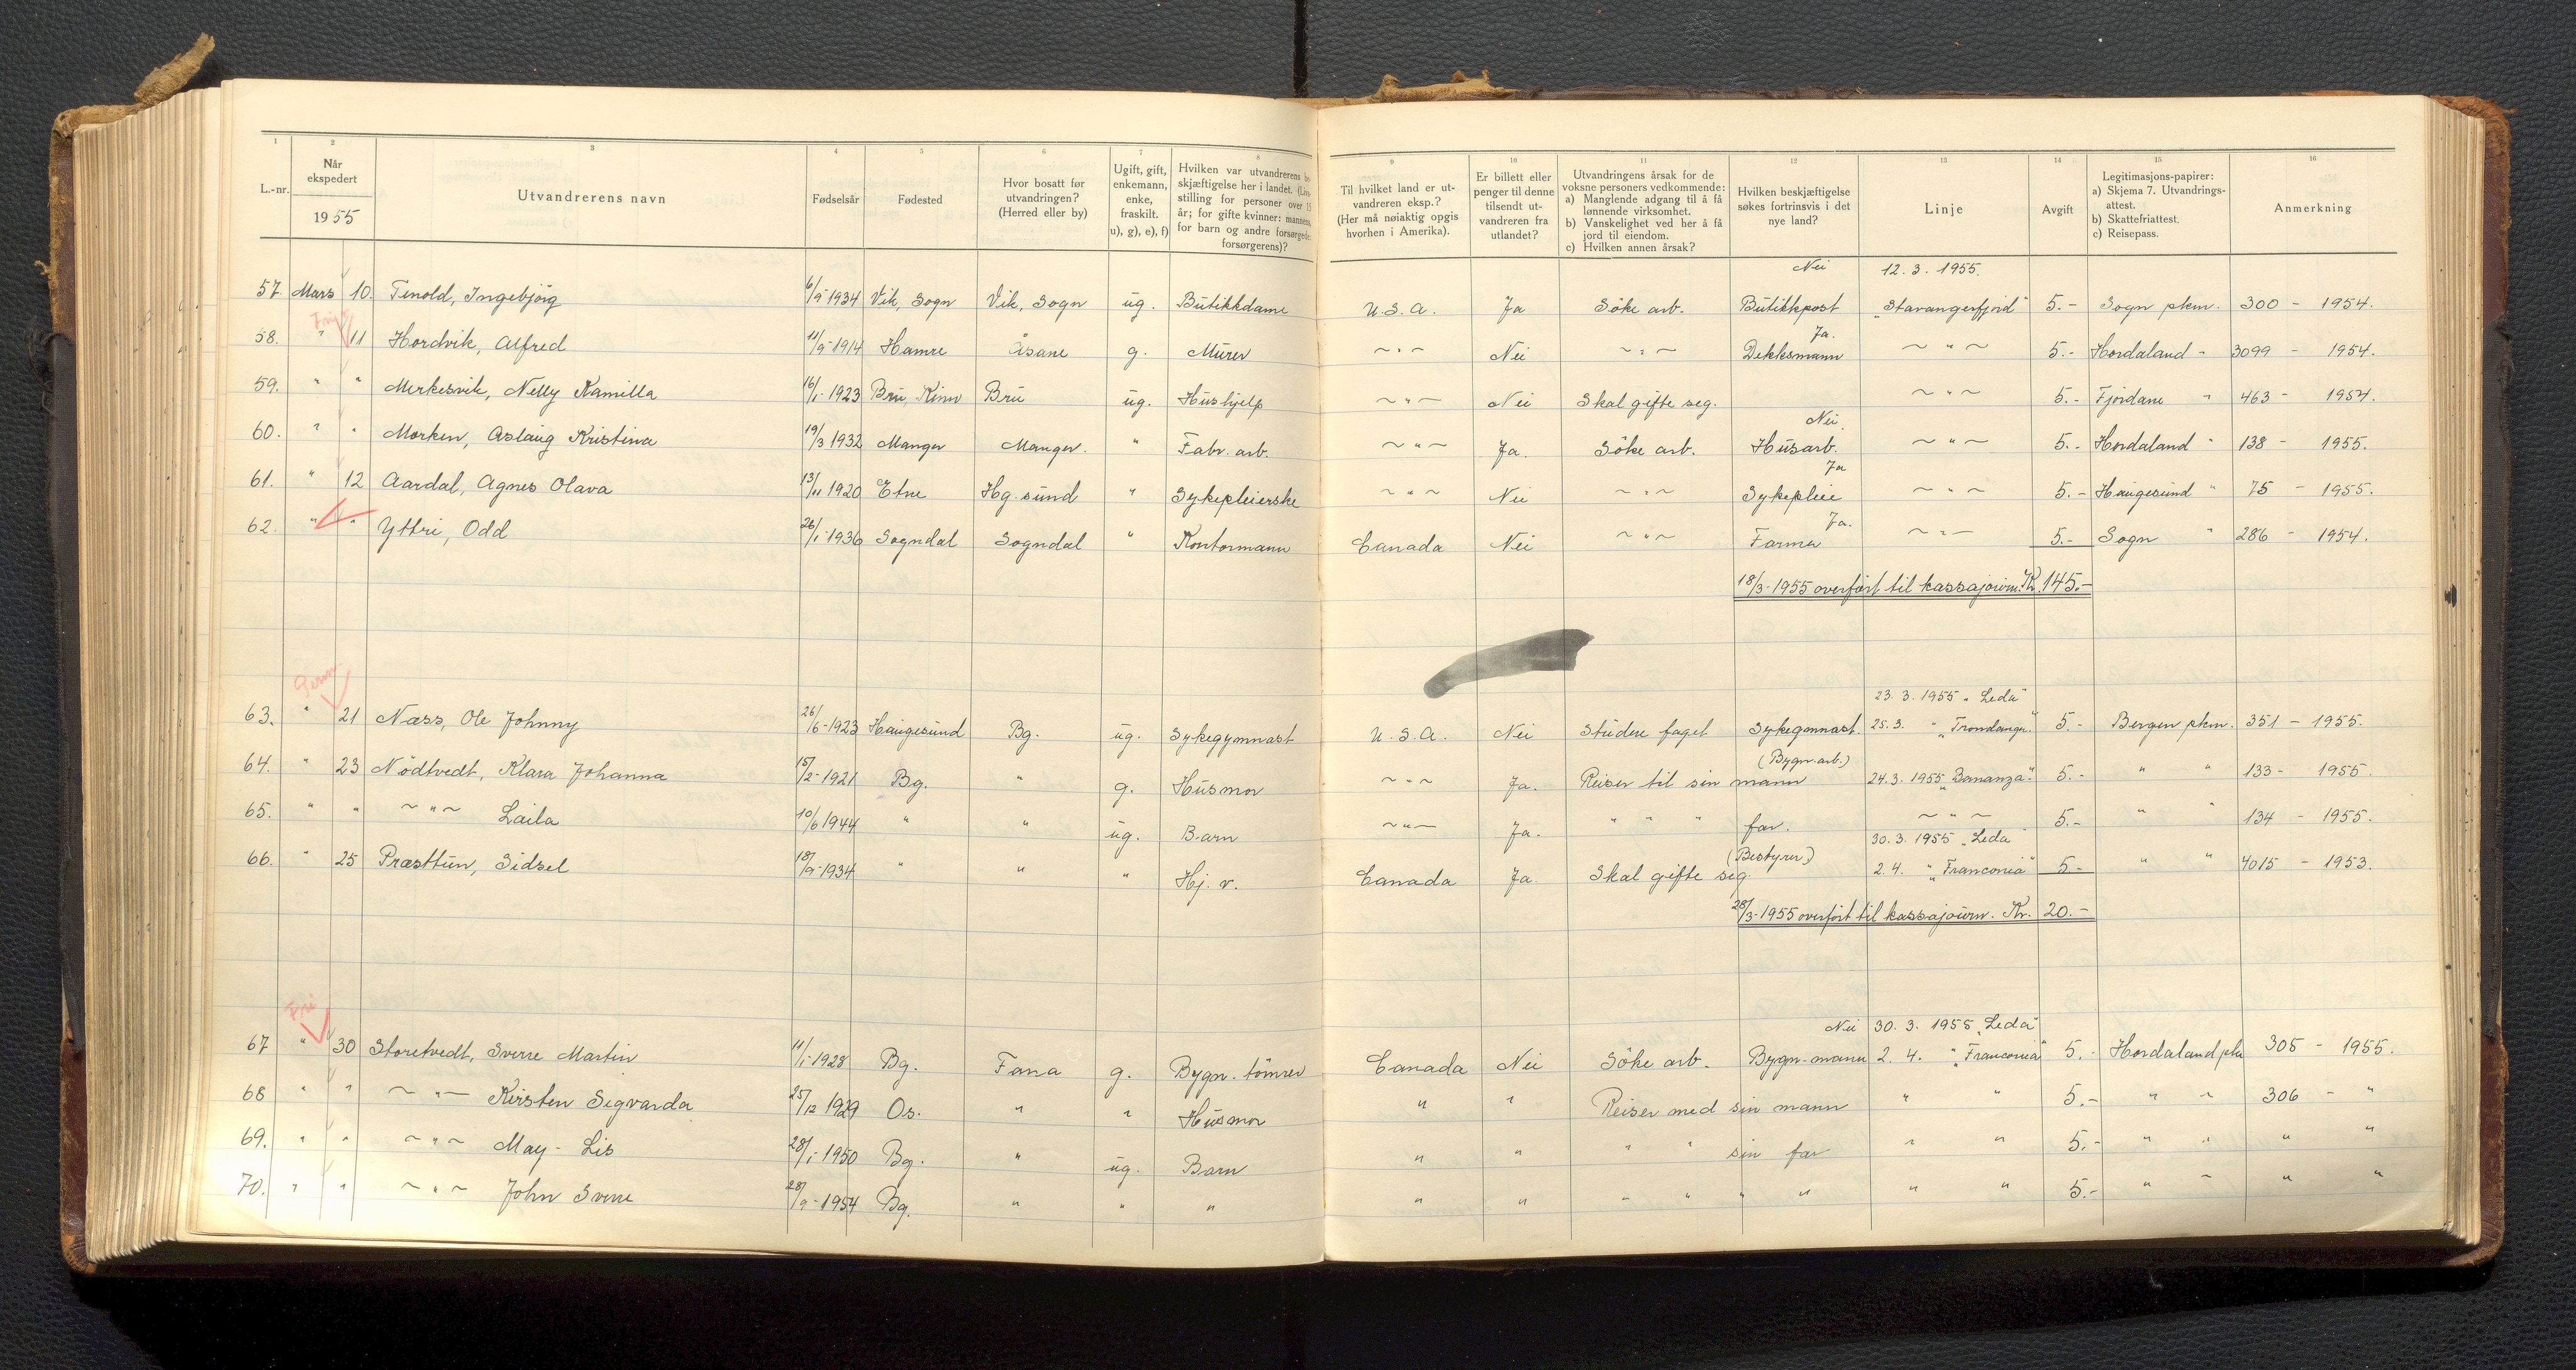 1 2 3 4 5 6 7 8 9 10 11 12 13 14 15 16
L.-nr. Når ekspedert 1955 Utvandrerens navn Fødselsår Fødested Hvor bosatt før utvandringen? (Herred eller by) Ugift, gift, enkemann, enke, fraskilt. u), g), e), f) Hvilken var utvandrerens skjæftigelse her i landet. stilling for personer over 15 år; for gifte kvinner: mannens, for barn og andre forsørgede: forsørgerens)? Til hvilket land er utvandreren eksp.? (Her må nøiaktig opgis hvorhen i Amerika). Er billett eller penger til denne tilsendt utvandreren fra utlandet? Utvandringens årsak for de voksne personers vedkommende: a) Manglende adgang til å få lønnende virksomhet. b) Vanskelighet ved her å få jord til eiendom. c) Hvilken annen årsak? Hvilken beskjæftigelse søkes fortrinsvis i det nye land? Linje Avgift Legitimasjons-papirer: a) Skjema 7. Utvandrings-attest. b) Skattefriattest. c) Reisepass. Anmerkning
Nei 12. 3. 1955.
57. Mars 10. Tenold, Ingebjörg 6/9-1934 Vik, Sogn Vik, Sogn ug. Butikkdame U.S.A. Ja Söke arb. Butikkpost "Stavangerfjord" 5.- Sogn pkm. 300 - 1954.
Ja.
58. " 11 Hordvik, Alfred 11/9-1914 Hamre Åsane g. Murer ~"~ Nei ~"~ Dekksmann ~"~ 5.- Hordaland " 3099 - 1954.
59. " " Merkesvik, Nelly Kamilla 16/1-1923 Bru, Kinn Bru ug. Hushjelp ~"~ Nei Skal gifte seg. ~"~ 5.- Fjordane " 463 - 1954.
Nei.
60. " " Morken, Aslaug Kristina 19/3 1932 Manger Manger. " Fabr. arb. ~"~ Ja. Söke arb. Husarb. ~"~ 5.- Hordaland " 138 - 1955.
Ja
61. " 12 Aardal, Agnes Olava 13/11 1920 Etne Hg.sund " Sykepleierske ~"~ Nei ~"~ Sykepleie ~"~ 5.- Haugesund " 75 - 1955.
Ja.
62. " " Yttri, Odd 26/1-1936 Sogndal Sogndal " Kontormann Canada Nei ~"~ Farmer ~"~ 5.- Sogn " 286 - 1954.
18/3-1955 overfört til kassajourn. Kr. 145.-
23. 3. 1955 "Leda"
63. " 21 Næss, Ole Johnny 26/6-1923 Haugesund Bg. ug. Sykegymnast U.S.A. Nei Studere faget Sykegymnast. 25.3. " 5.- Bergen pkm. 351 - 1955.
(Bygn.arb.)
64. " 23 Nödtvedt, Klara Johanna 15/2-1921 Bg. " g. Husmor ~"~ Ja. Reiser til sin mann 24.3.1955 "Bonanza" 5.- " " 133 - 1955.
65. " " ~"~ Laila 10/6 1944 " " ug. Barn ~"~ Ja. " " " far. ~"~ 5.- " " 134 - 1955.
(Bestyrer) 30.3.1955 "Leda"
66. " 25 Præsttun, Sidsel 18/9-1934 " " " Hj. v. Canada Ja Skal gifte seg. 2.4. " "Franconia" 5.- " " 4015 - 1953.
28/3-1955 overfört til kassajourn. Kr. 20.-
Fri
Nei 30. 3. 1955 "Leda"
67 " 30 Storetvedt, Sverre Martin 11/1-1928 Bg. Fana g. Bygn. tömrer Canada Nei Söke arb. Bygn-mann 2. 4. " "Franconia" 5.- Hordaland 305 - 1955.
68 " " ~"~ Kirsten Sigvarda 25/12 1929 Os. " " Husmor " " Reiser med sin mann " " 5.- " " 306 - "
69. " " ~"~ May-Lis 28/1-1950 Bg. " ug. Barn " " " " sin far " " 5.- " " " "
70. " " ~"~ John Sverre 28/9-1954 Bg. " " " " " " " " " " " 5.- " " " "